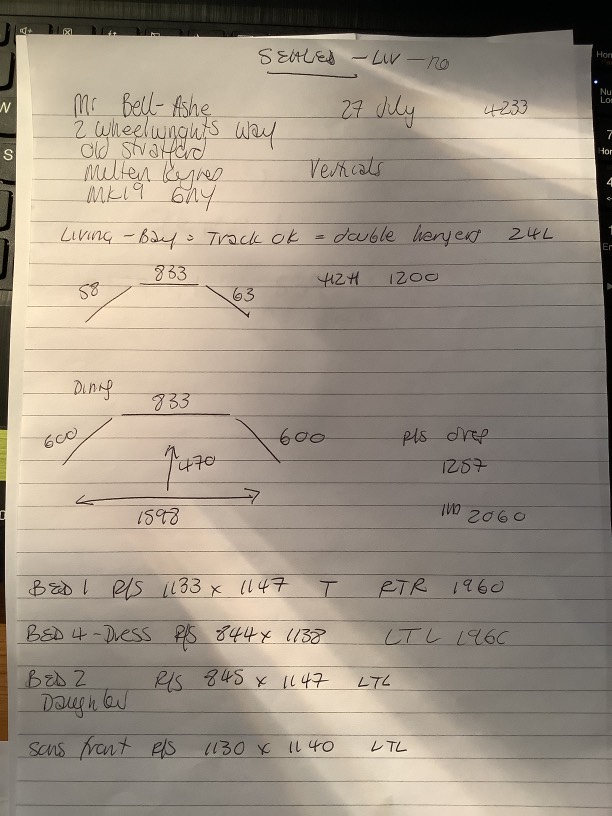 Mr Bell-Ashe 27 July 4233
2 wheelwrights way
old Stratford
Verticals
MK19 6NY
Living - Bay = Track OK = double hangers 24L
833
58 63 1200
Dining
833
600 600 P/S drop
470 1257
1598 2060
BED 1 R/S 1133 x 1147 T RTR 1960
BED 4 - Dress R/S 844 x 1138 LTL 196C
BED 2 R/S 845 x 1147 LTL
Daughter
Sons front R/S 1130 x 1140 LTL